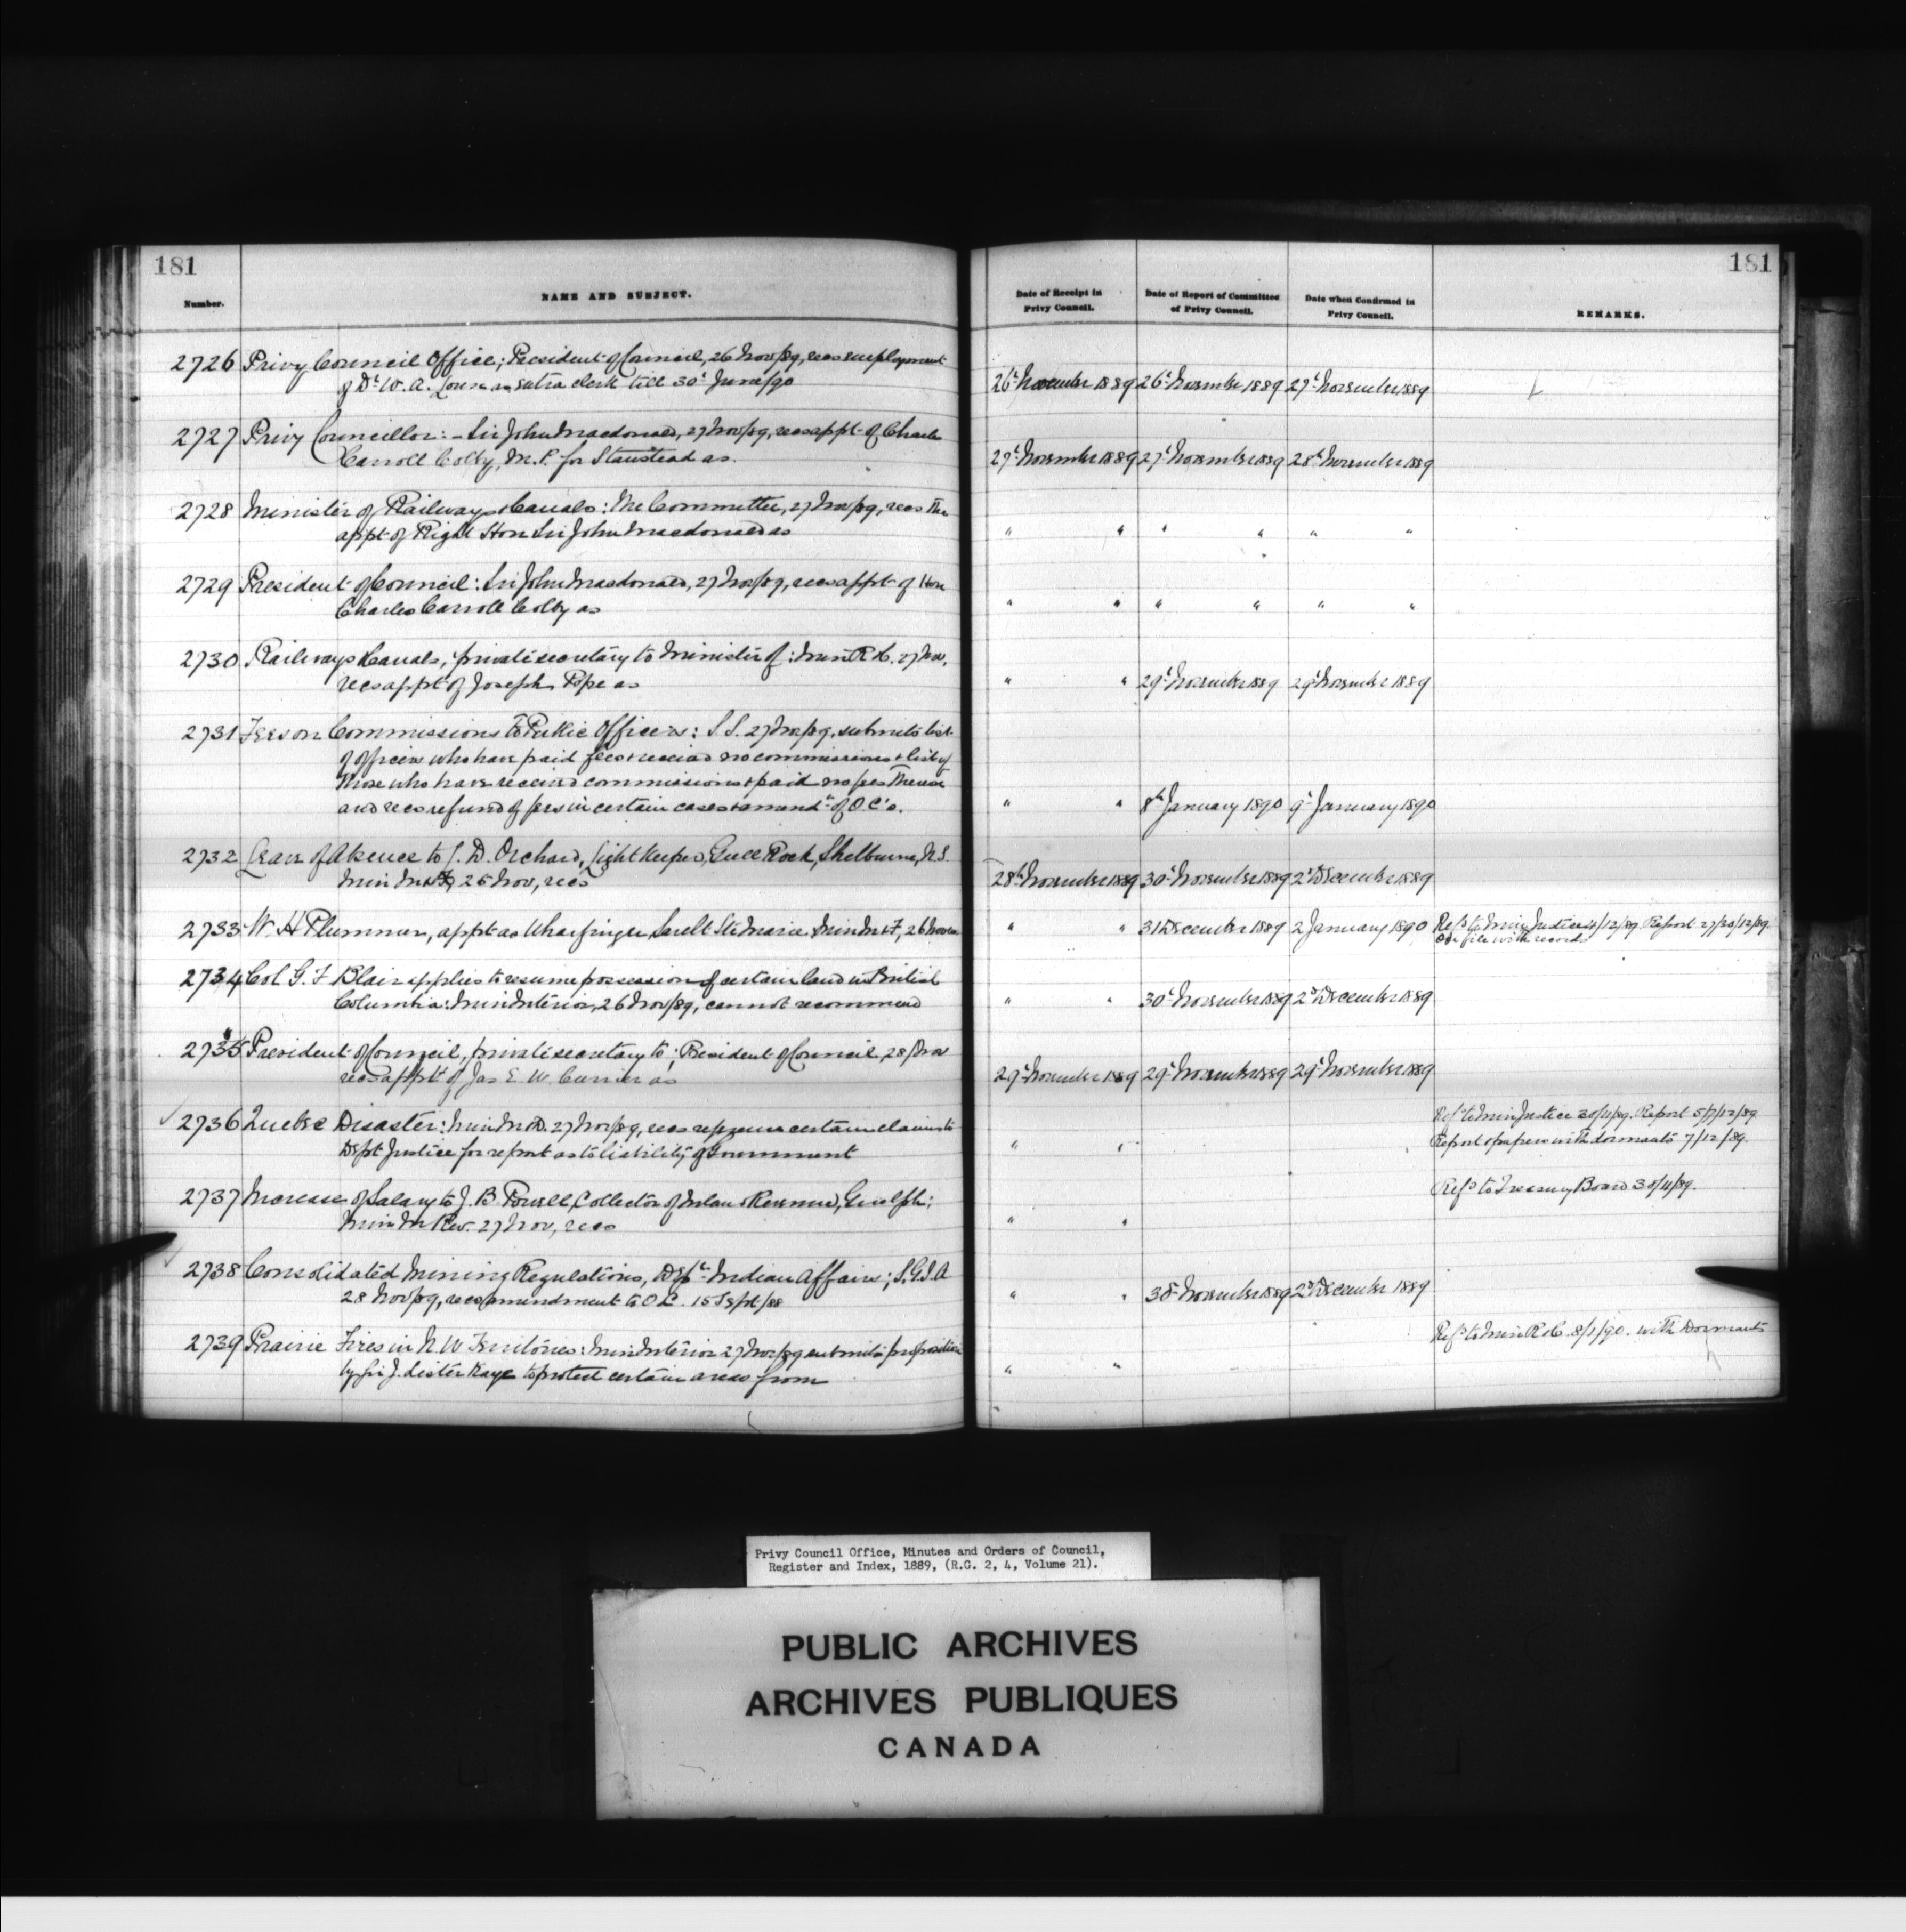 181
181
Number.
NAME AND SUBJECT.
Date of Receipt in Privy Council.
Date of Report of Committee of Privy Council.
Date when Confirmed in Privy Council.
REMARKS.
2726 Privy Council Office; President of Council, 26 Nov/89, recs employment
of Dr W. A. as extra clerk till 30t June/90
26t November 1889 26t November 1889 27t November 1889
2727 Privy Councillor:- Sir John Macdonald, 27 Nov/89, recs appt of Charles
Carroll Colby, M.P. for Stanstead as.
27t November 1889 27t November 1889 28th November 1889
2728 Minister of Railways & Canals: The Committee, 27 Nov/89, recs the
appt of Right Hon Sir John Macdonald as
" " " " " "
2729 President of Council: Sir John Macdonald, 27 Nov/89, recs appt of Hon
Charles Carroll Colby as
" " " " " "
2730 Railways & Canals, private secretary to Minister of: Min R & C. 27 Nov,
recs appt of Joseph Pope as
" " 29t November 1889 29t November 1889
2731 Fees on Commissions to Public Officers: S.S. 27 Nov/89, submits list
of officers who have paid fees & received no commissions & list of
those who have received commissions & paid no fees therefor
and recs refund of fees in certain cases & amendt of O.C's.
" " 8th January 1890 9t January 1890
2732 Leave of absence to J. D. Orchard, Light Keeper, Gull Rock, Shelburne, N.S.
Min M & F, 26 Nov, recs
28th November 1889 30t November 1889 2d December 1889
2733 W. H Plummer, appt as Wharfinger, Sault Ste Marie Min M & F, 26 Nov recs
" " 31 December 1889 2 January 1890 Refd to Min Justice 4/12/89. Report 27/30/12/89.
On file with records
2734 Col G. F Blair applies to resume possession of certain land in British
Columbia: Min Interior, 26 Nov/89, cannot recommend
" " 30t November 1889 2d December 1889
2735 President of Council, private secretary to; President of Council, 28 Nov
recs appt of Jas E. W. Currier as
29t November 1889 29t November 1889 29t November 1889
2736 Quebec Disaster: Min M & D. 27 Nov/89, recs reference certain claims to
Dept Justice for report as to liability of Government
" " Refd to Min Justice 30/11/89. Report 5/7/12/89
Report & papers with dormants 7/12/89.
2737 Increase of Salary to J. B. Powell, Collector of Inland Revenue, Guelph:
Min In Rev. 27 Nov, recs
" " Refd to Treasury Board 30/11/89.
2738 Consolidated Mining Regulations, Dept Indian Affairs; S.G.I.A
28 Nov/89, recs amendment to O.C. 15 Sept/88
" " 30t November 1889 2d December 1889
2739 Prairie Fires in N. W Territories: Min Interior 27 Nov/89 submits proposition
by Sir J. Lister Kaye to protect certain areas from
" " Refd to Min R & C. 8/1/90. with Dormants
Privy Council Office, Minutes and Orders of Council,
Register and Index, 1889, (R.G. 2, 4, Volume 21).
PUBLIC ARCHIVES
ARCHIVES PUBLIQUES
CANADA